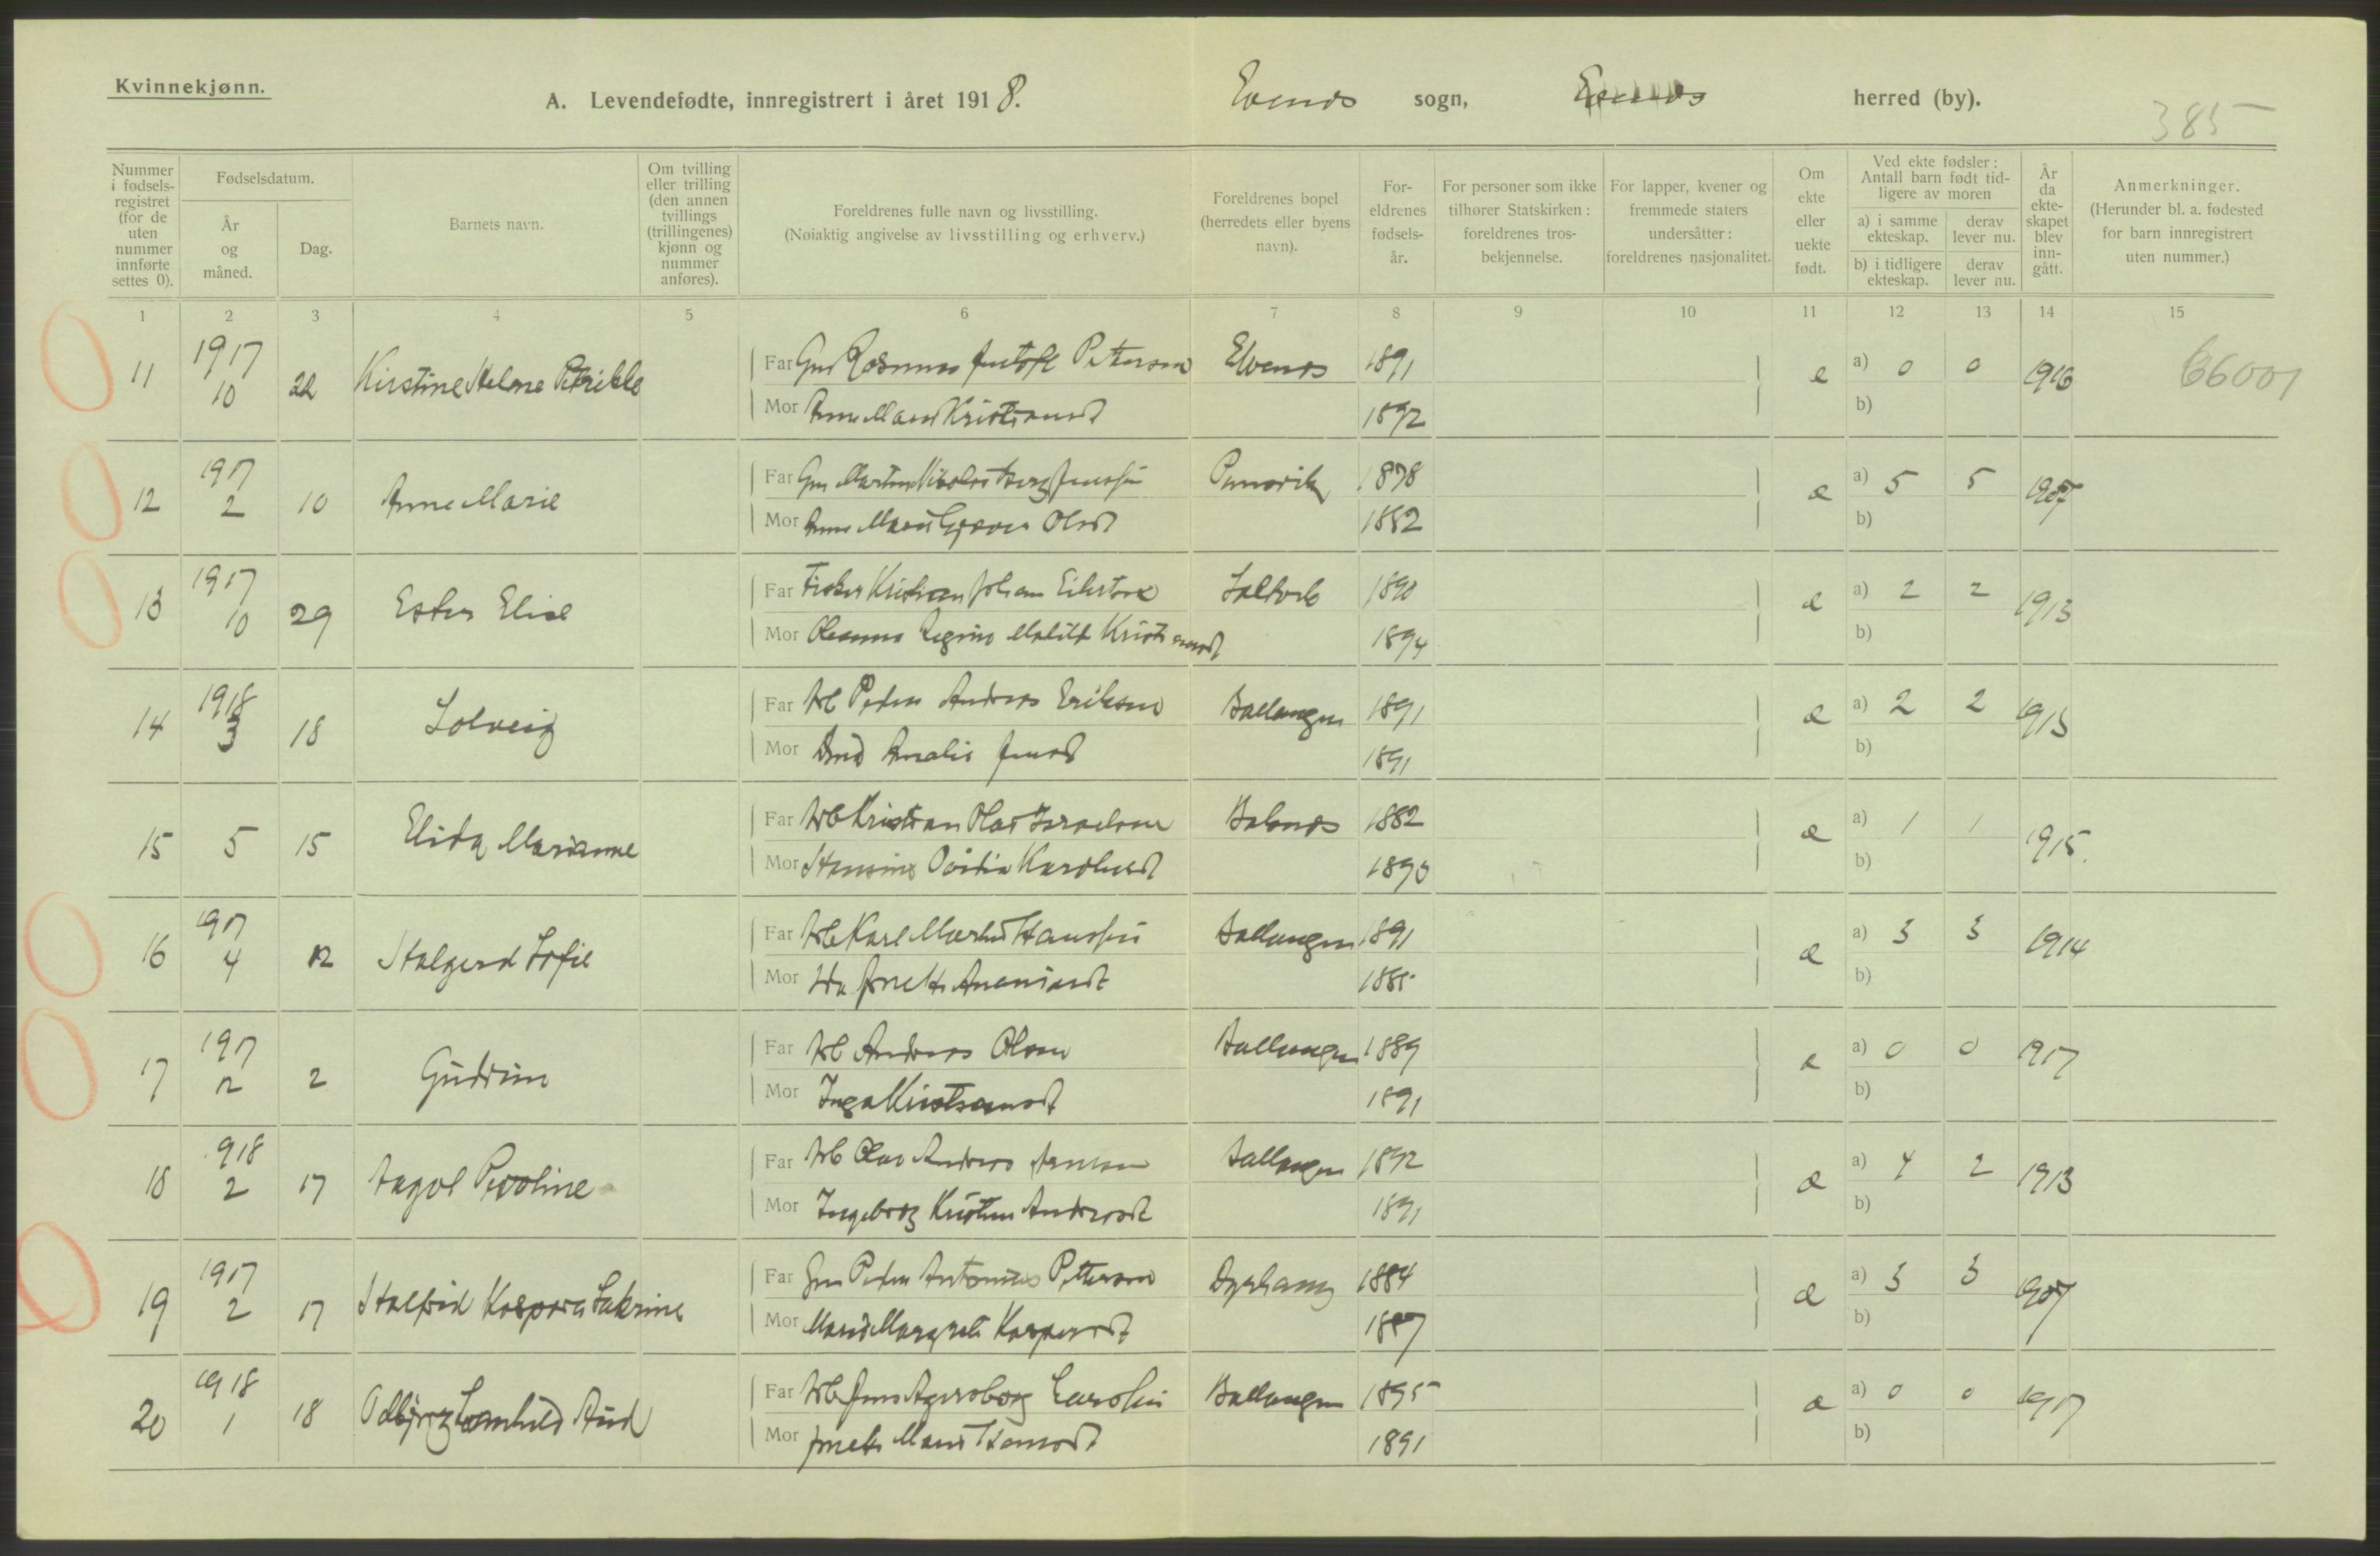 Kvinnekjønn.
A. Levendefødte, innregistrert i året 1918.
Evenes sogn, Evenes herred (by).
385
Nummer i fødsels-registret (for de uten nummer innførte settes 0).
Fødselsdatum.
År og måned.
Dag.
Barnets navn.
Om tvilling eller trilling (den annen tvillings (trillingenes) kjønn og nummer anføres).
Foreldrenes fulle navn og livsstilling.
(Nøiaktig angivelse av livsstilling og erhverv.)
Foreldrenes bopel (herredets eller byens navn).
For-eldrenes fødsels-år.
For personer som ikke tilhører Statskirken: foreldrenes tros-bekjennelse.
For lapper, kvener og fremmede staters undersåtter: foreldrenes nasjonalitet.
Om ekte eller uekte født.
Ved ekte fødsler: Antall barn født tid-ligere av moren
a) i samme ekteskap.
derav lever nu.
b) i tidligere ekteskap.
derav lever nu.
År da ekte-skapet blev inn-gått.
Anmerkninger.
(Herunder bl. a. fødested for barn innregistrert uten nummer.)
1 2 3 4 5 6 7 8 9 10 11 12 13 14 15
11 1917 10 22 Kirstine Helene Far Petersen Evenes 1891 e a) 0 0 1916 66001
Mor Kristiansdt 1892 b)
12 1917 2 10 Anne Marie Far Gm Martin Nikolai Berg Jenssen 1878 e a) 5 5 1907
Mor Anna Marie Olsdt 1882 b)
13 1917 10 29 Ester Elise Far Fisker Kristian Johan 1890 e a) 2 2 1913
Mor Regine Matilde Kristiansdt 1894 b)
14 1918 3 18 Solveig Far Arb Peder Andreas Eriksen Ballangen 1891 e a) 2 2 1913
Mor Amalie Jensdt 1891 b)
15 5 15 Elida Marianne Far Arb Kristian Olai Israelsen 1882 e a) 1 1 1915.
Mor Hansine 1890 b)
16 1917 4 12 Halgerd Sofie Far Arb Karl Martin Hanssen Ballangen 1891 e a) 3 3 1914
Mor Ananiasdt 1885 b)
17 1917 12 2 Gudrun Far Arb Andreas Olsen Ballangen 1889 e a) 0 0 1917
Mor Inga Kristiansdt 1891 b)
18 1918 2 17 Aagot Far Arb Olav Andreas Ballangen 1892 e a) 4 2 1913
Mor Ingeborg Kristine Andersdt 1891 b)
19 1917 2 17 Halfrid Kaspara Far Gm Peder Antonius Pettersen Dyrhaug 1884 e a) 3 3 1907
Mor Marie Margrete Kaspersdt 1887 b)
20 1918 1 18 Odbjørg Aud Far Arb Jens Ballangen 1895 e a) 0 0 1917
Mor Marie Hansdt 1891 b)